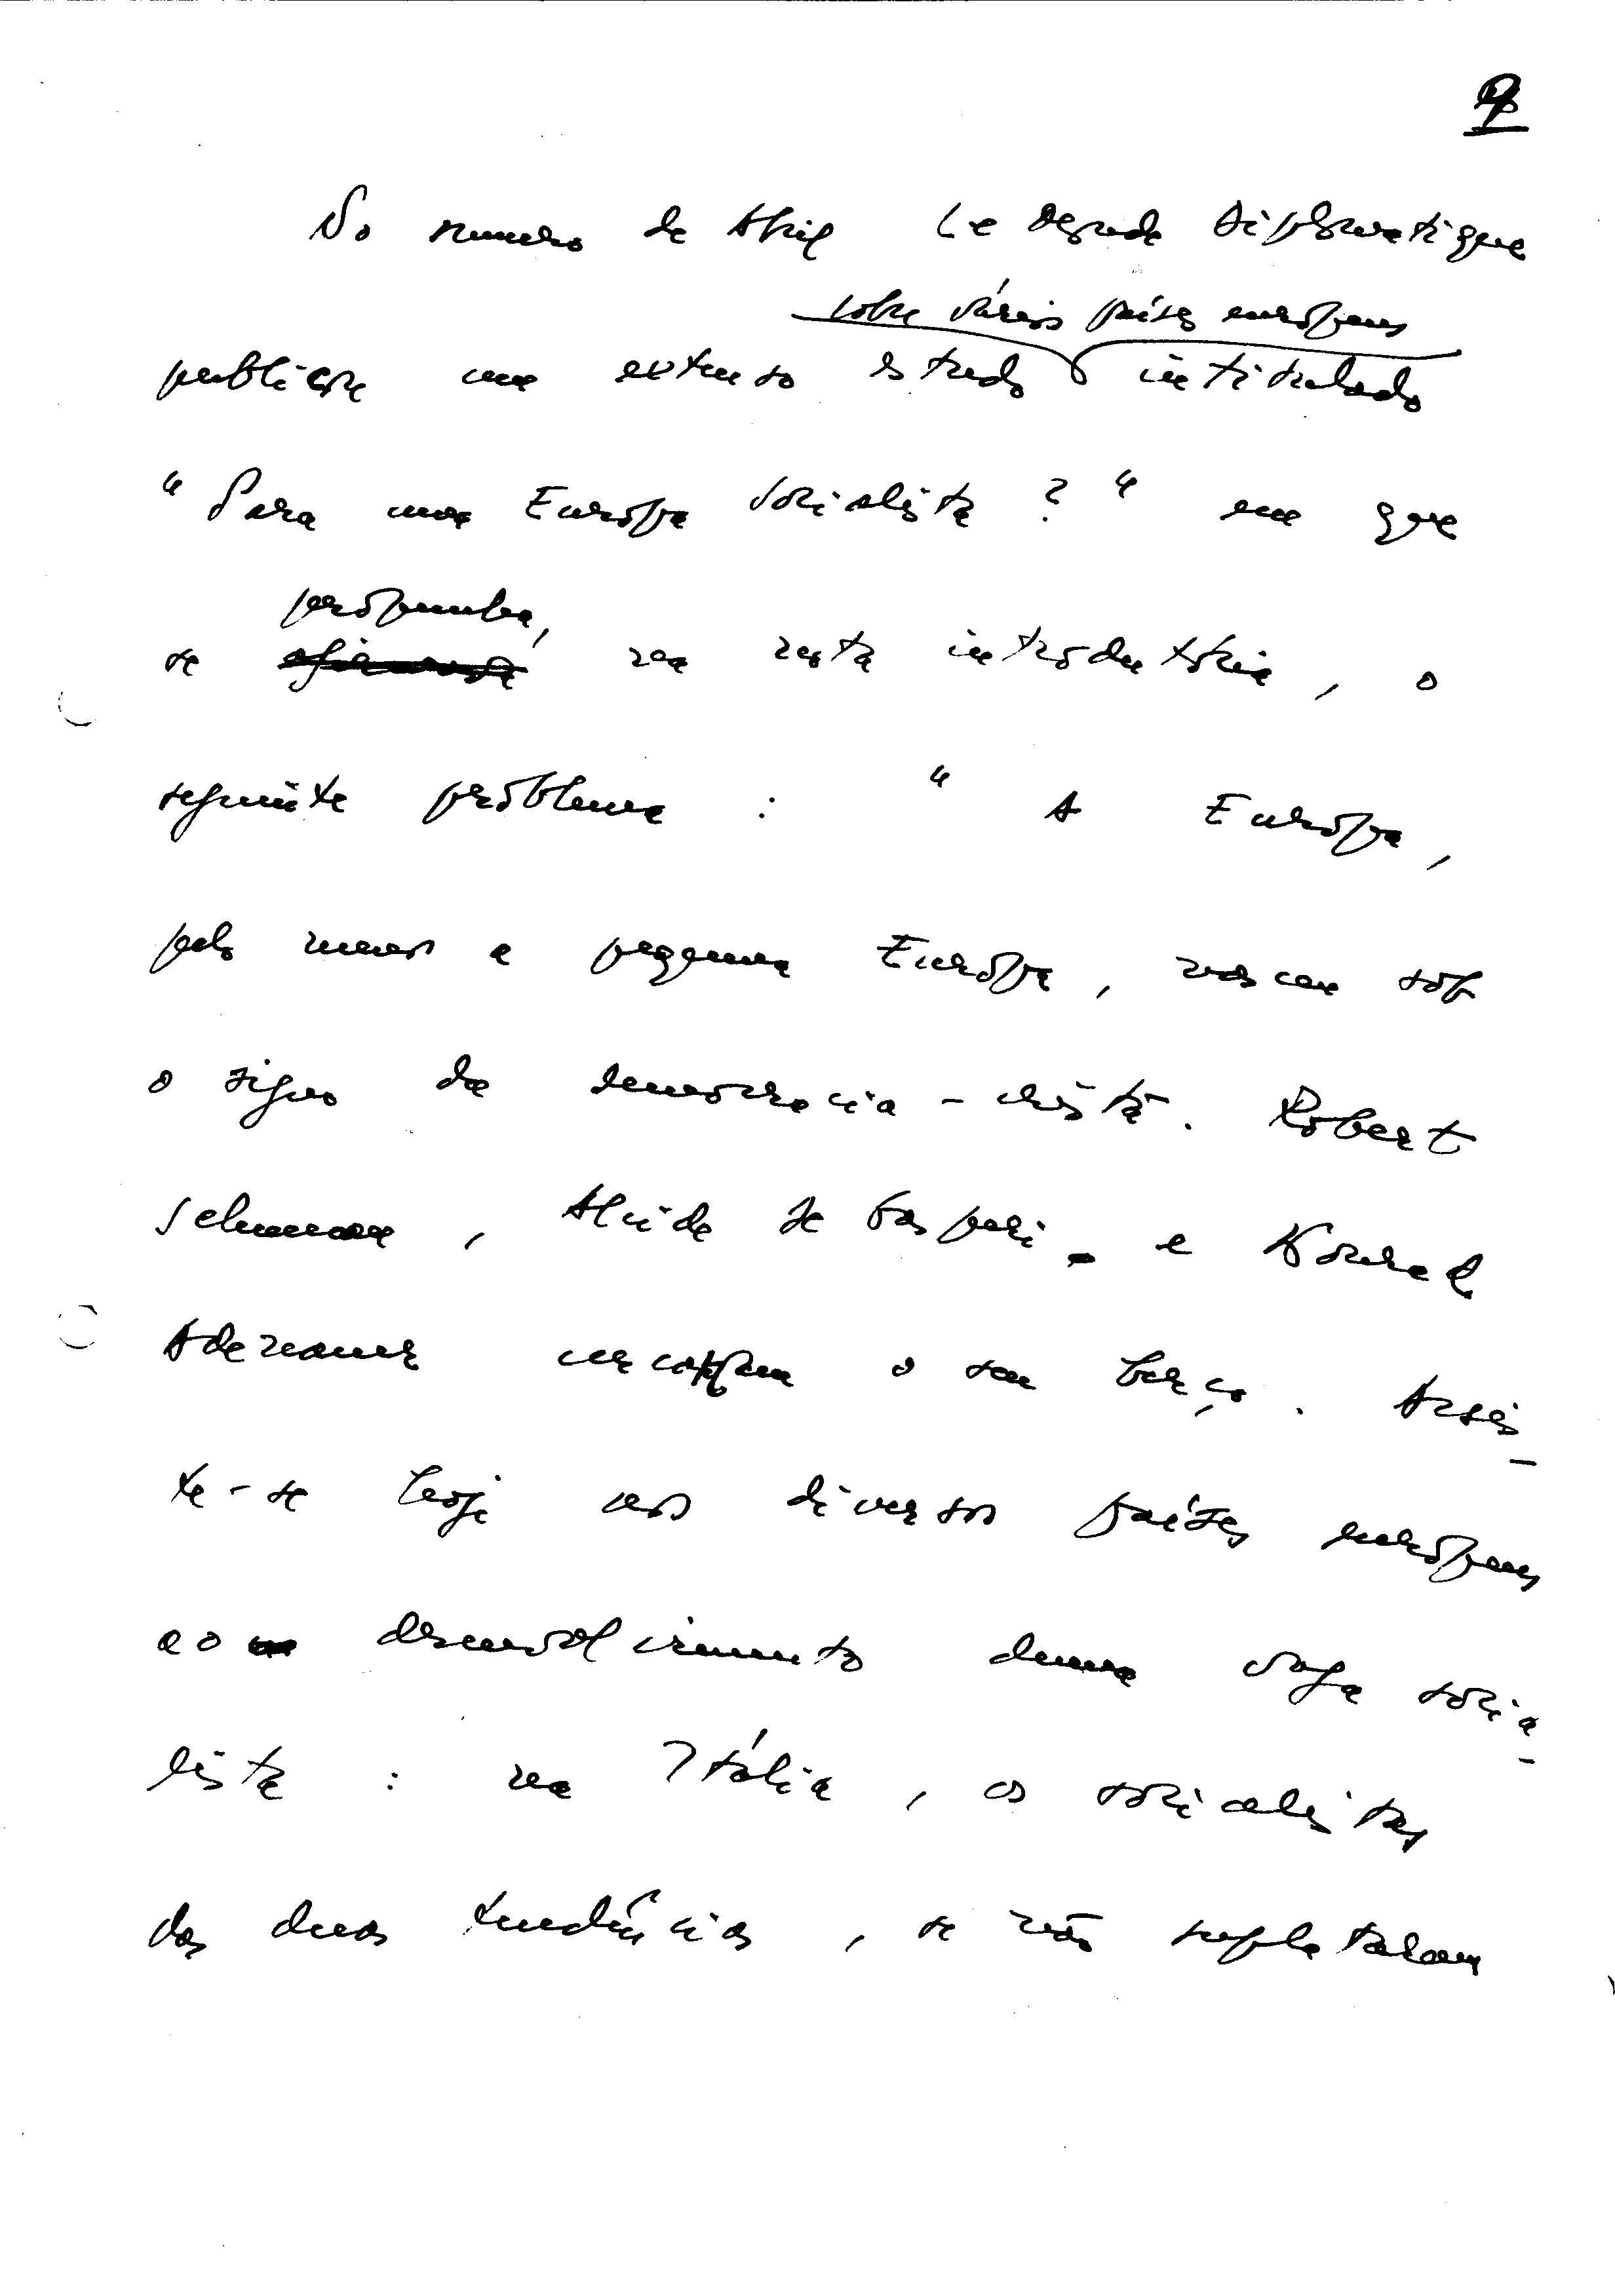 9
No numero de Abril Le Monde Diplomatique
sobre vários países europeus
publica um extenso estudo intitulado
"Para uma Europa Socialista?" em que
perspectiva,
se na nota introdutória, o
seguinte problema: "A Europa,
pelo menos a pequena Europa, nasceu sob
o signo da democracia-cristã. Robert
Schumann, Alcide de Gasperi e Konrad
Adenauer cercaram o seu berço. Assis-
te-se hoje nos diversos países europeus
ao desenvolvimento duma vaga socia-
lista: na Itália, os socialistas
das duas tendências, se não completaram